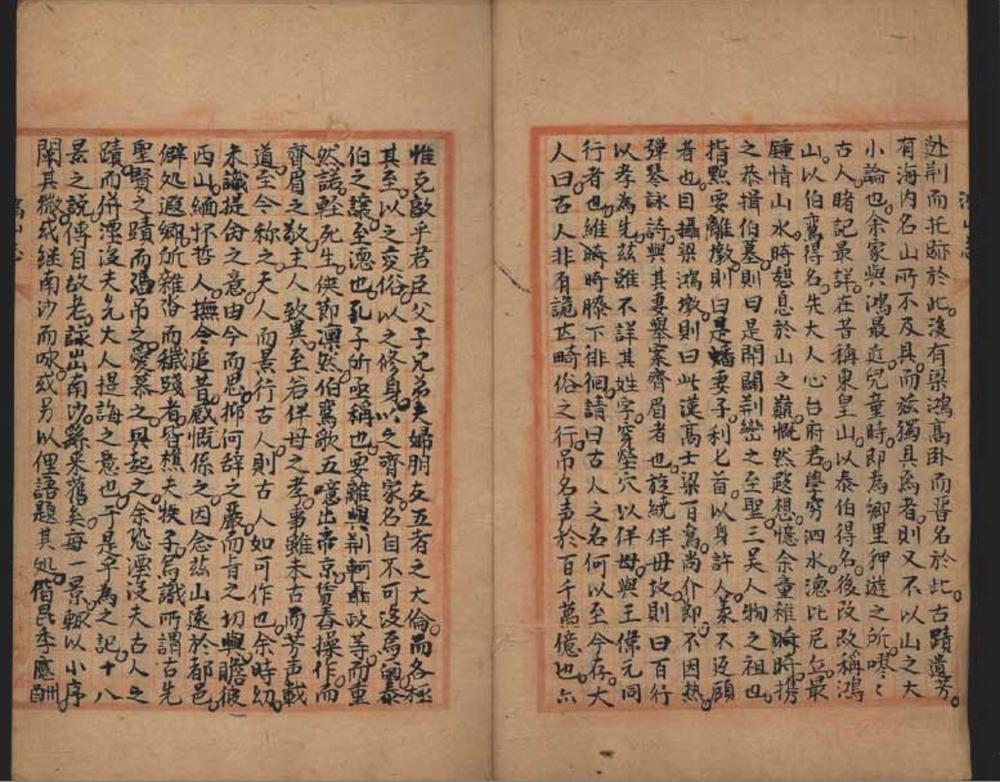 赴荆而托跡於此後有梁鴻高卧而晉名於此古蹟遺芳
有海内名山所不及具而兹獨具焉者則又不以山之大
小論也余家與鴻最近兒童時即為鄉里狎遊之所嘑之
古人睹記最詳在昔稱東皇山以泰伯得名後改稱鴻
山以伯鸞得名先大人心台府君學窮泗水德比尼丘最
鍾情山水時憩息於山之巔慨然遐想憶余童稚時時撈
之恭揖伯墓則曰是開闢荆蠻之至聖三吴人物之祖也
指點要離墩則曰是燔妻子利匕首以身許人義不返顧
者也目攝梁鴻墩則曰此漢高士梁百鸞尚介節不因熱
彈琴詠詩與其妻舉案齊眉者也旋繞佯母故則曰百行
以孝為先兹雖不詳其姓字穿塋穴以佯母與王偉元同
行者也維時時膝下徘徊請曰古人之名何以至今存大
人曰古人非有詭世畸俗之行吊名声於百千萬億也六
惟克敦乎君臣父子兄弟夫婦朋友五者之大倫而各極
其至以之変俗以之修身以之齊家名自不可没焉氣泰
伯之讓至徳也孔子所亟稱也要離與荆軻聶政等而重
然諾軽死生侠節凛然伯鸞歌五噫出帝京賃舂操作而
齊眉之敬主人致異至若佯母之孝事雖未古而芳声載
道至今称之夫人而景行古人則古人如可作也余時幼
未識提命之意由今而思抑何辞之嚴而旨之切與瞻彼
西山緬怀哲人撫今追昔感慨係之因念兹山遠於都邑
僻処遐鄉所雜沓而穢踐者皆樵夫牧子烏識所謂古先
聖賢之蹟而憑吊之愛慕之興起之余恐湮没夫古人之
蹟而併湮没夫先大人提誨之意也于是乎為之記十八
景之說傳自故老詠出南沙繇来舊矣每一景輒以小序
闡其微或继南沙而咏或另以俚語題其処偕昆季應酬